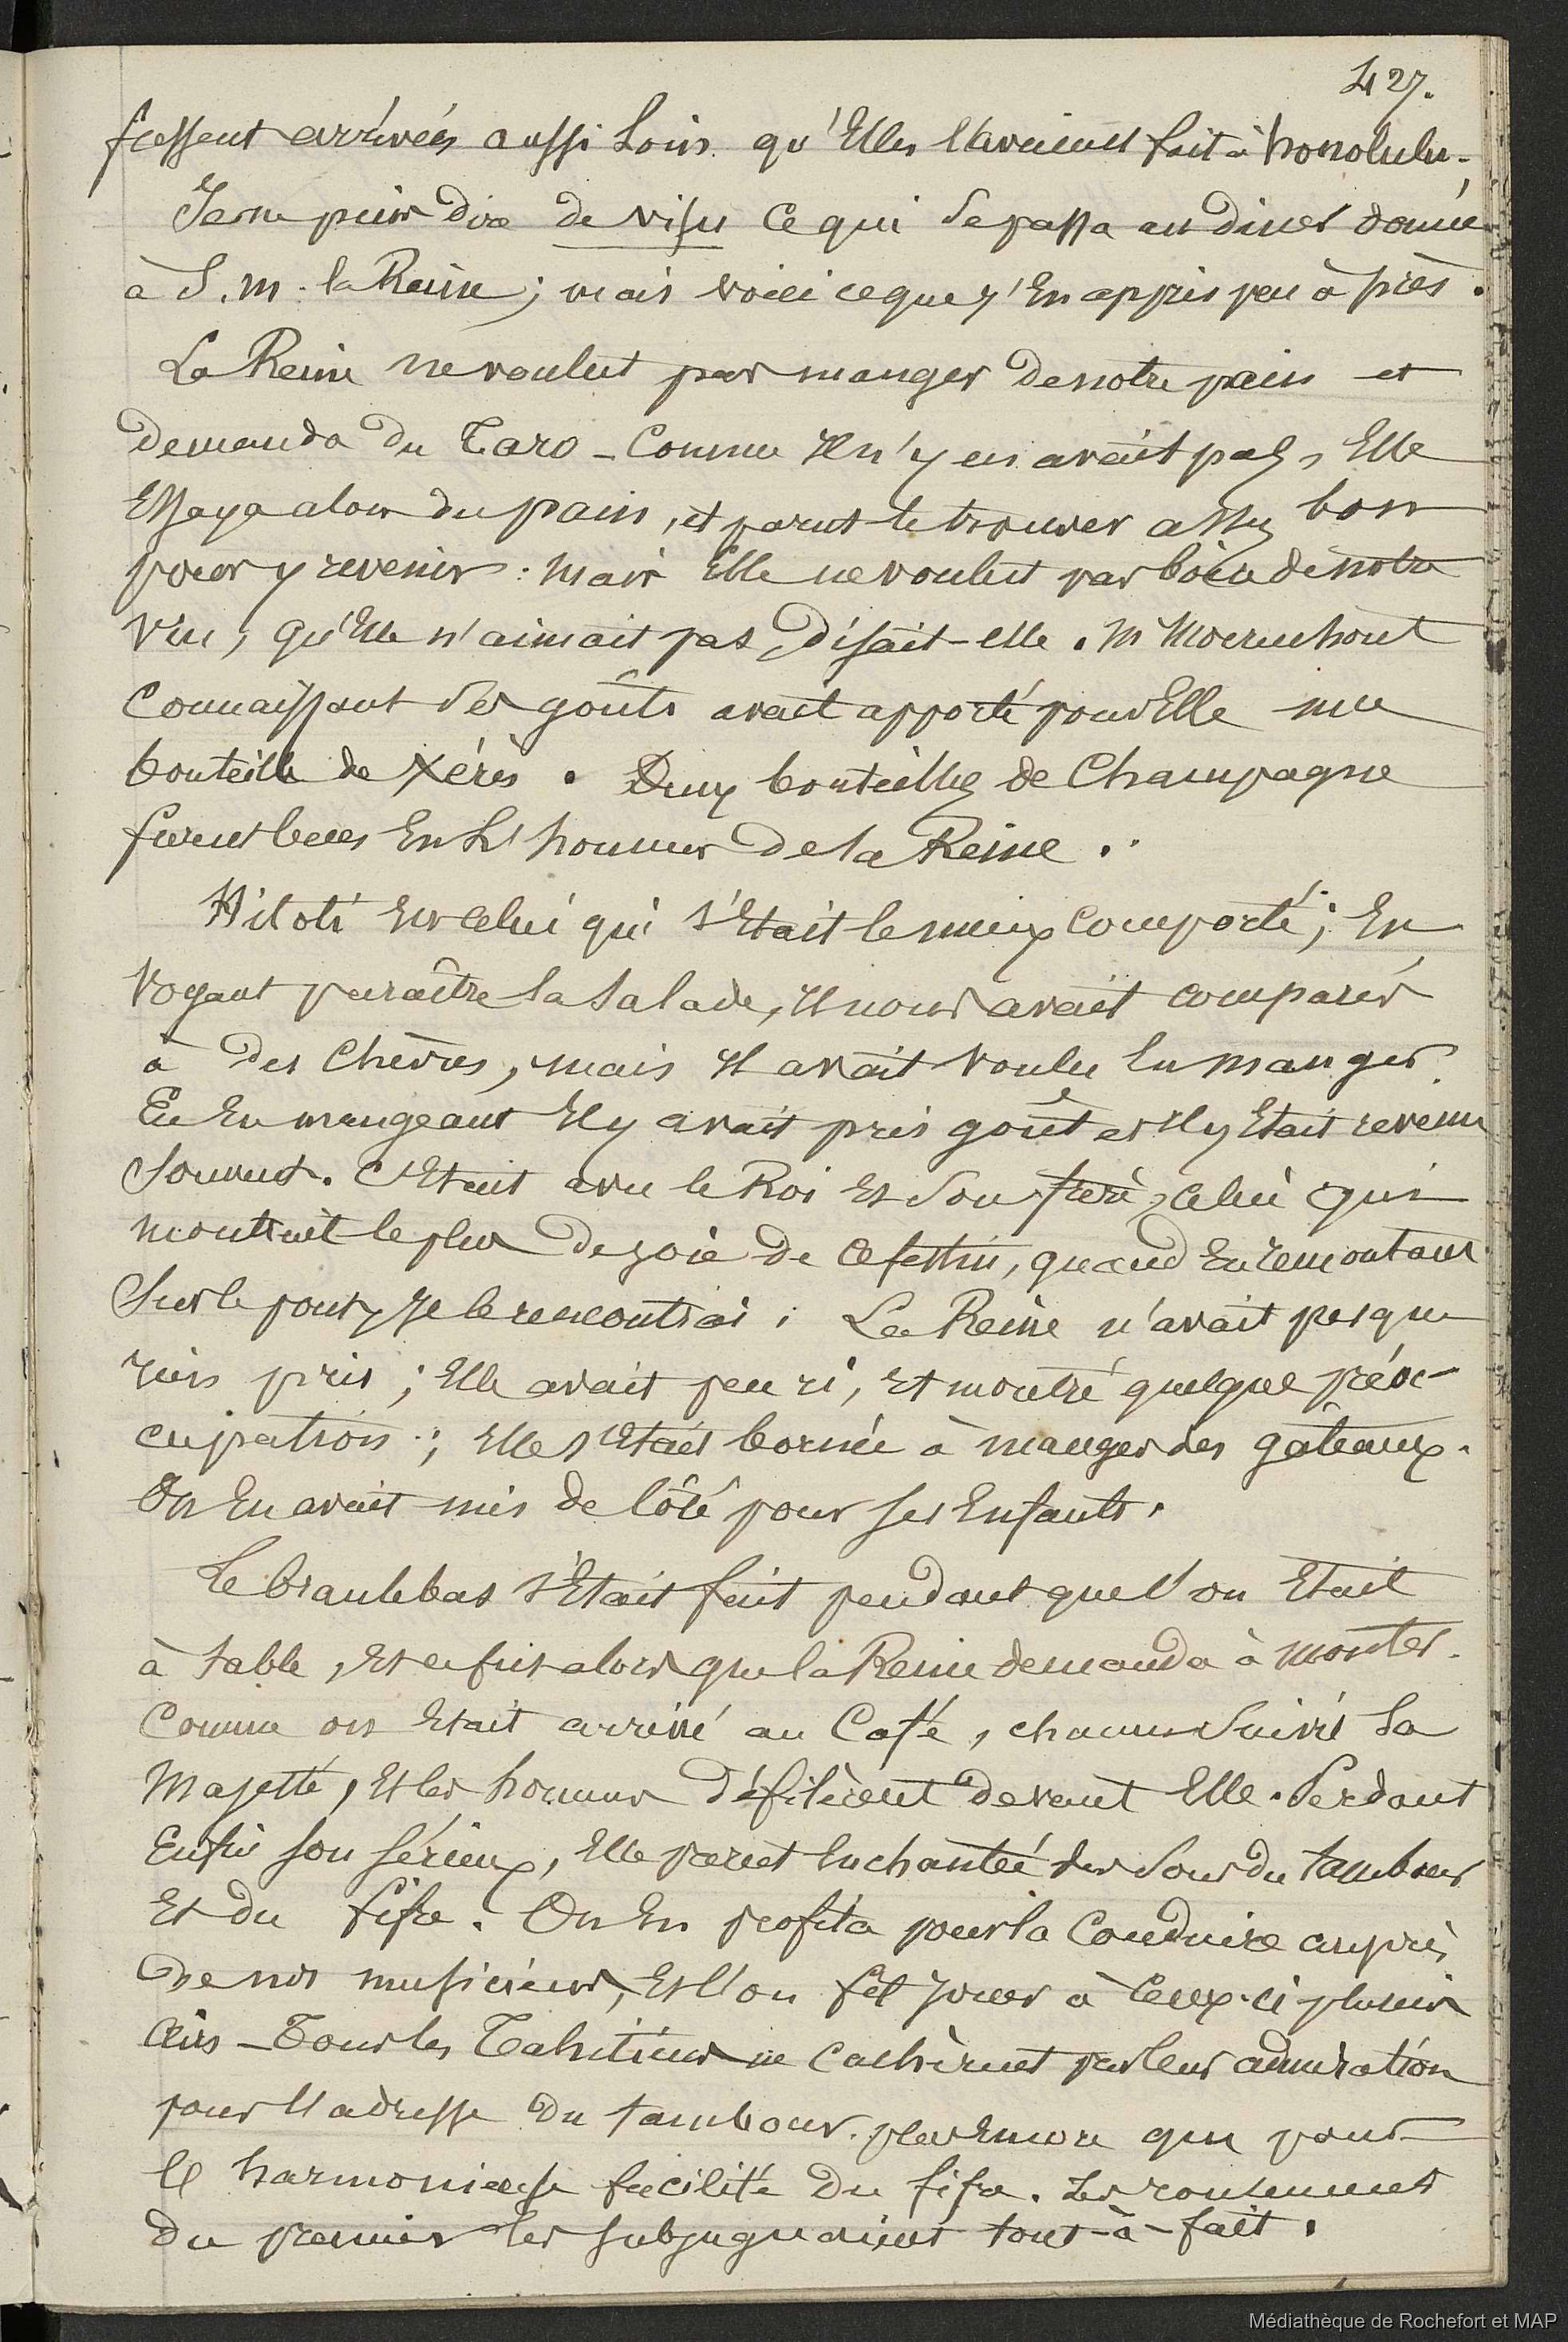 427.
fussent arrivées aussi loin qu'Elles l'avaient fait à honolulu.
Je ne puis dire de visu ce qui se passa au diner donné
à S. M. la Reine ; mais voici ce que j'en appris peu après.
La Reine ne voulut pas manger de notre pain et
demanda du Taro - Comme Il n'y en avait pas, Elle
Essaya alors du pain, et parut le trouver assez bon
pour y revenir : mais Elle ne voulut pas boire de notre
vin, qu'Elle n'aimait pas, disait-elle. Mr Moerenhout
Connaissant ses goûts avait apporté pour Elle une
bouteille de Xérès. Deux bouteilles de Champagne
furent bues En l'honneur de la Reine.
Hitoti Est celui qui s'Etait le mieux Comporté ; En
voyant paraître la salade, Il nous avait comparés
à des Chèvres, mais Il avait voulu En manger.
En En mangeant Il y avait pris goût et Il y Etait revenu
Souvent. C'Etait avec le Roi Et son frère, celui qui
montrait le plus de joie de ce festin, quand En remontant
Sur le pont, Je le rencontrai ; La Reine n'avait presque
rien pris ; Elle avait peu ri, Et montré quelque préoc-
cupation ; Elle s'Etait bornée à manger des gâteaux.
On En avait mis de côté pour ses Enfants.
Le branlebas s'Etait fait pendant que l'on Etait
à table, Et ce fut alors que la Reine demanda à monter.
Comme on Etait arrivé au Café, chacun suivit Sa
Majesté, Et les hommes défilèrent devant Elle. Perdant
Enfin son sérieux, Elle parut Enchantée des sons du tambour
Et du fifre. On En profita pour la Conduire auprès
de nos musiciens, Et l'on fit jouer à Ceux-ci plusieurs
airs - Tous les Tahitiens ne cachèrent pas leur admiration
pour l'adresse du tambour plus Encore que pour
l'harmonieuse facilité du fifre. Les roulements
du premier les subjuguaient tout-à-fait.
Médiathèque de Rochefort et MAP